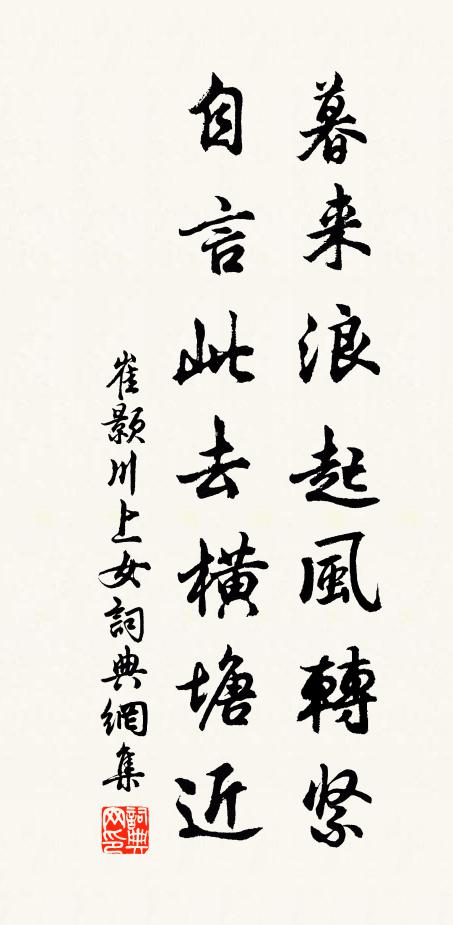 暮来浪起風轉紧
自言此去横塘近
崔颢川上女詞典網集
詞典网印